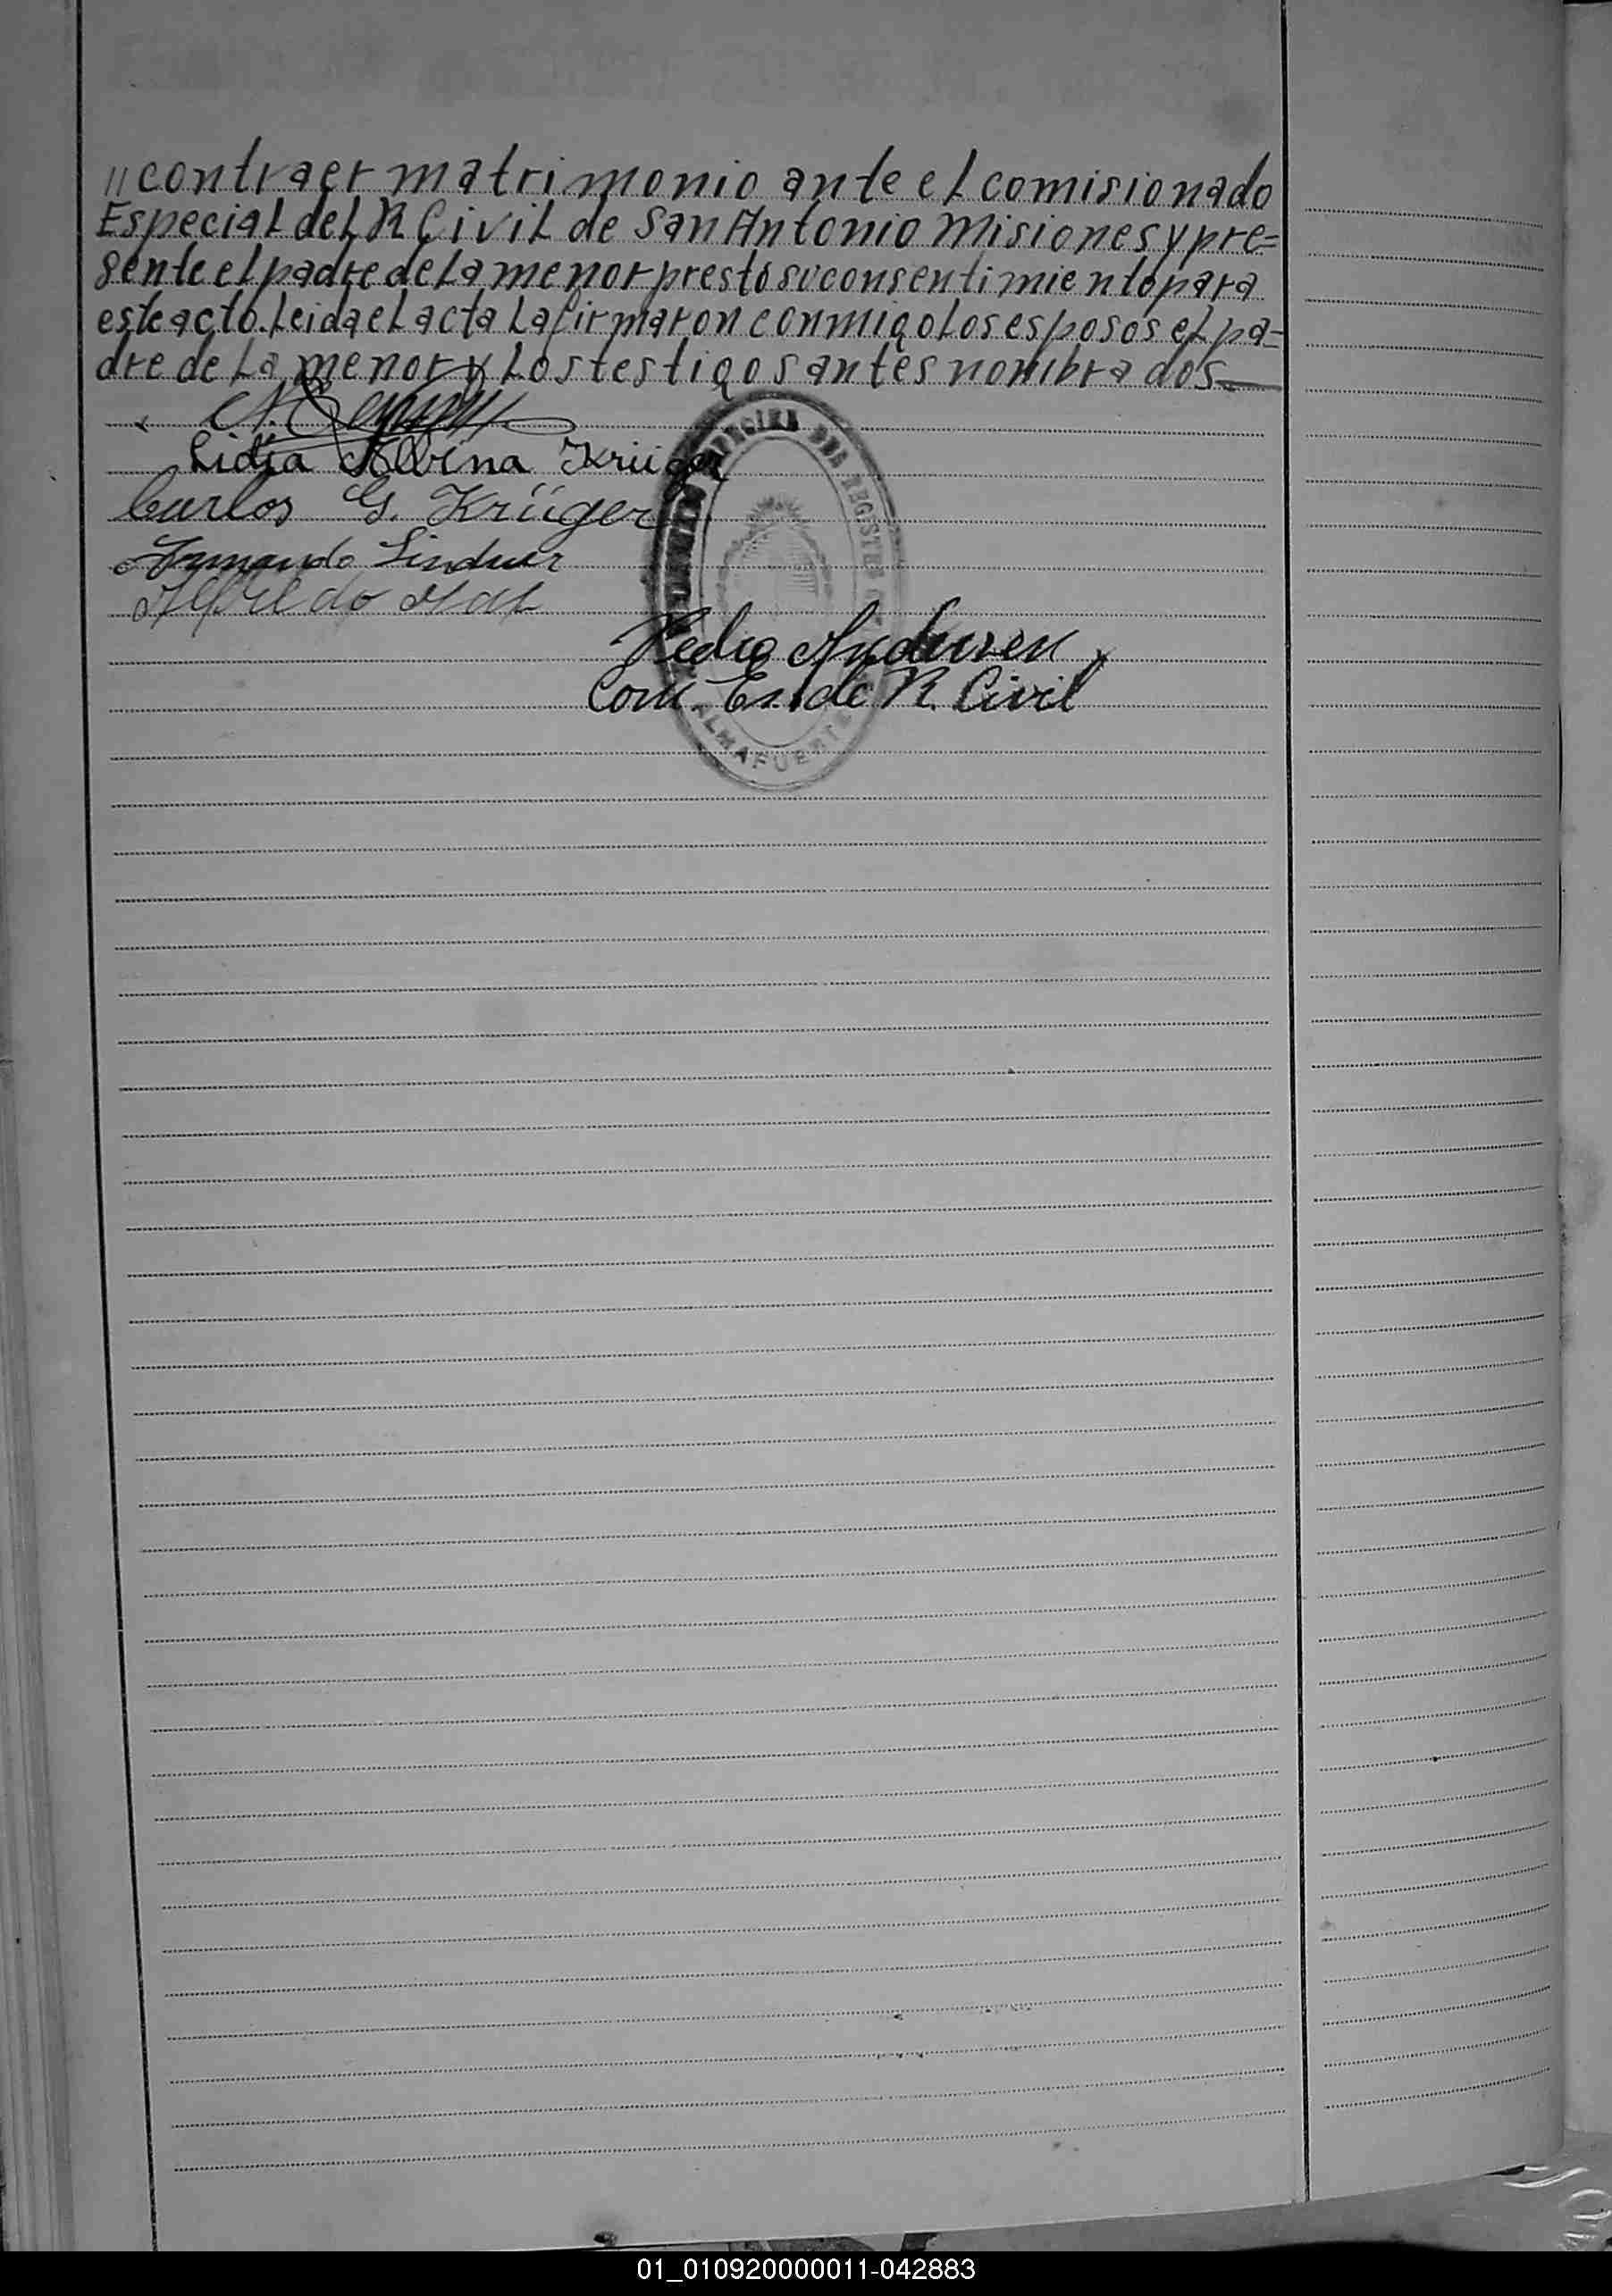 "contraer matrimonio ante el comisionado
Especial del R Civil de San Antonio Misiones y pre=
sente el padre de La menor prestó su consentimiento para
este acto. Leida el acta La firmaron conmigo Los esposos el pa=
dre de La menor y Los testigos antes nombrados.—
Lidia Albina Krüger
Carlos G. Krüger
Armando Lindner
Alfredo
ESPECIAL DEL REGISTRO
Pedro Andersen
Com. Es. de R. Civil
ALMAFUERTE
01_010920000011-042883